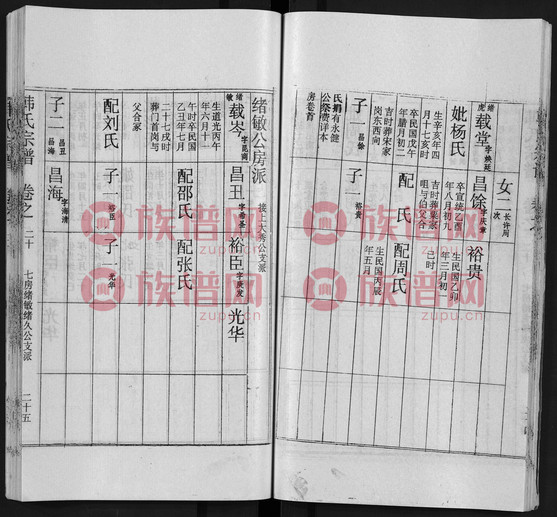 女二 长许周 次
绪虎 载堂 字焕延 昌馀 字庆章 裕贵
妣杨氏
生辛亥年四
月十七亥时
卒民国戊午
年腊月初二
吉时葬宋家
岗东西向
子一 昌馀
卒宣统乙酉
年八月初九
吉时葬巢家
咀与伯父合
配 氏
子一 裕贵
生民国乙卯
年三月初一
巳时
配周氏
生民国丙辰
年五月
氏捐有永健
公祭费详本
房卷首
绪敏公房派 接上大秀公支派
绪敏 载岑 字昆南 昌丑 字希圣 裕臣 字庆发 光华
生道光丙午
年六月十一
午时卒民国
乙丑年七月
二十七戌时
葬门首岗与
父合冢
配刘氏 子一 裕臣
配邵氏 子一 光华
配张氏
子二 昌丑 昌海 昌海 字海清
韩氏宗谱 卷之二十 七房绪敏绪久公支派 二十五
族谱网
zupu.cn